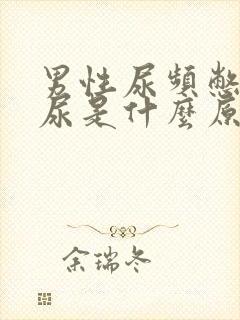 男性尿頻憋
尿是什麼原
余瑞冬